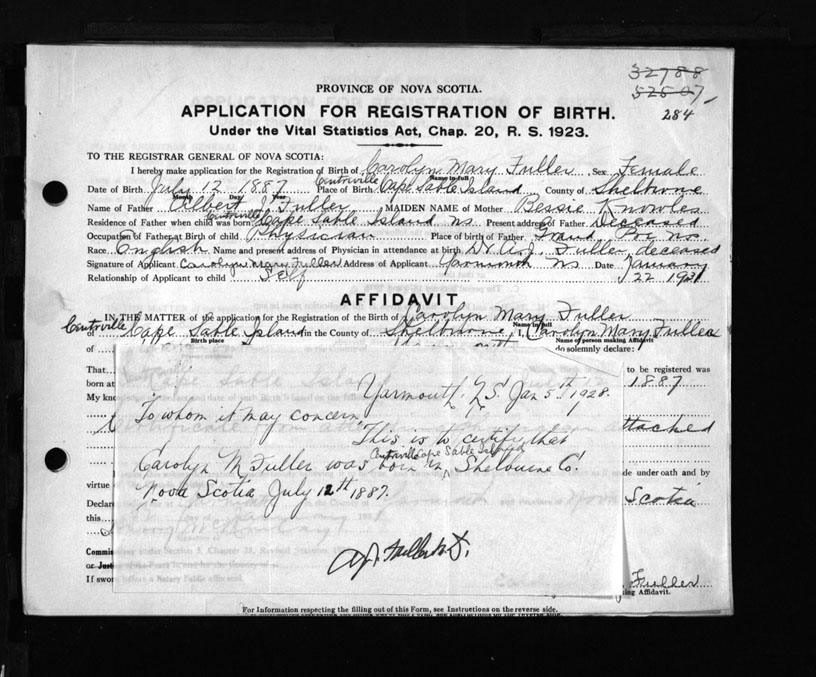 32788
52507
284
PROVINCE OF NOVA SCOTIA.
APPLICATION FOR REGISTRATION OF BIRTH.
Under the Vital Statistics Act, Chap. 20, R. S. 1923.
TO THE REGISTRAR GENERAL OF NOVA SCOTIA:
I hereby make application for the Registration of Birth of Carolyn Mary Fuller Sex Female
Name in full
Date of Birth July 12 1887 Place of Birth Centreville Cape Sable Island County of Shelburne
Month Day Year
Name of Father Albert J. Fuller MAIDEN NAME of Mother Bessie Knowles
Residence of Father when child was born Centreville Cape Sable Island NS Present address of Father Deceased
Occupation of Father at Birth of child Physician Place of birth of Father Grand Pre NS
Race English Name and present address of Physician in attendance at birth Dr A. J. Fuller, deceased
Signature of Applicant Carolyn Mary Fuller Address of Applicant Yarmouth NS Date January
Relationship of Applicant to child Self 22 1931
AFFIDAVIT
IN THE MATTER of the application for the Registration of the Birth of Carolyn Mary Fuller
Name in full
of Centreville Cape Sable Island in the County of Shelburne I, Carolyn Mary Fuller
Birth place Name of person making Affidavit
of do solemnly declare:
That to be registered was
born at 1887
My
attached
Yarmouth, N.S. Jan 5th 1928.
To whom it may concern
This is to certify that
Carolyn M Fuller was born in Centreville Cape Sable Island Shelburne Co.
Nova Scotia July 12th 1887.
A. J. Fuller M.D.
made under oath and by
virtue
Scotia
this
or
If
Fuller
Affidavit.
For Information respecting the filling out of this Form, see Instructions on the reverse side.